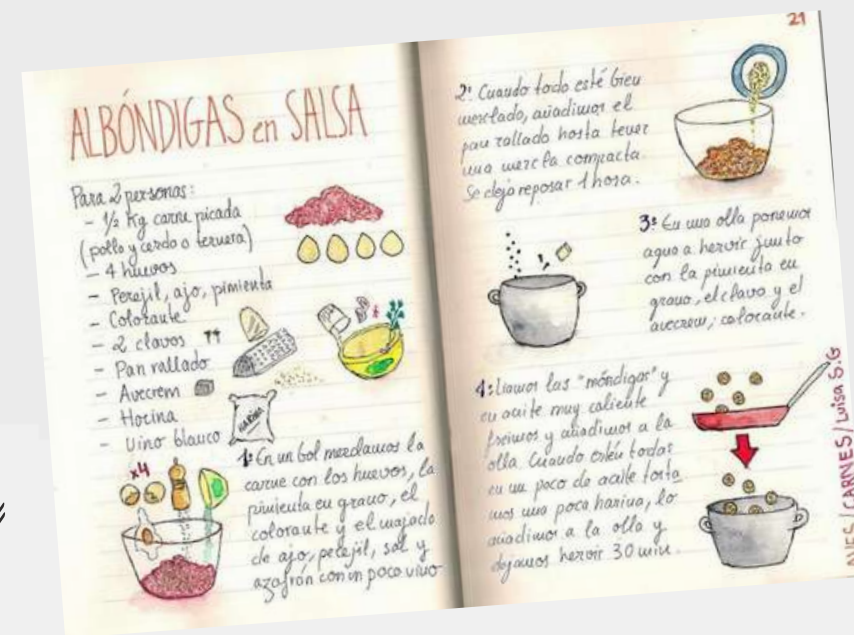 ALBÓNDIGAS en SALSA
Para 2 personas:
- 1/2 Kg carne picada
(pollo y cerdo o ternera)
- 4 huevos
- Perejil, ajo, pimienta
- Colorante
- 2 clavos
- Pan rallado
- Avecrem
- Harina
- Vino blanco
HARINA
x4
1º En un bol mezclamos la
carne con los huevos, la
pimienta en grano, el
colorante y el majado
de ajo, perejil, sal y
azafrán con un poco vino
21
2º Cuando todo esté bien
mezclado, añadimos el
pan rallado hasta tener
una mezcla compacta.
Se deja reposar 1 hora.
3º En una olla ponemos
agua a hervir junto
con la pimienta en
grano, el clavo y el
avecrem, colorante.
4º Liamos las "móndigas" y
en aceite muy caliente
freimos y añadimos a la
olla. Cuando estén todas
en un poco de aceite tosta
mos una poca harina, lo
añadimos a la olla y
dejamos hervir 30 min.
AVES / CARNES / Luisa S.G
y